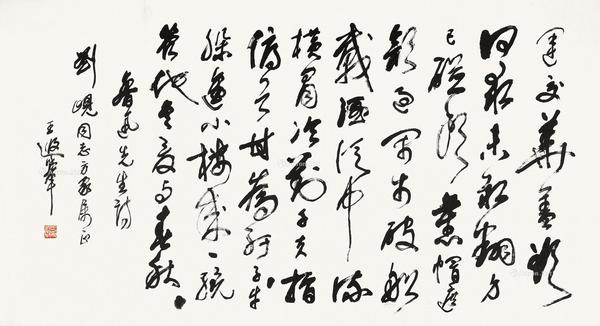 運交華蓋欲
何求未敢翻身
已碰頭舊帽遮
顏過鬧市破船
載酒泛中流
橫眉冷對千夫指
俯首甘為孺子牛
躲進小樓成一統
管他冬夏與春秋
魯迅先生詩
劉峴同志方家屬正
王遐舉